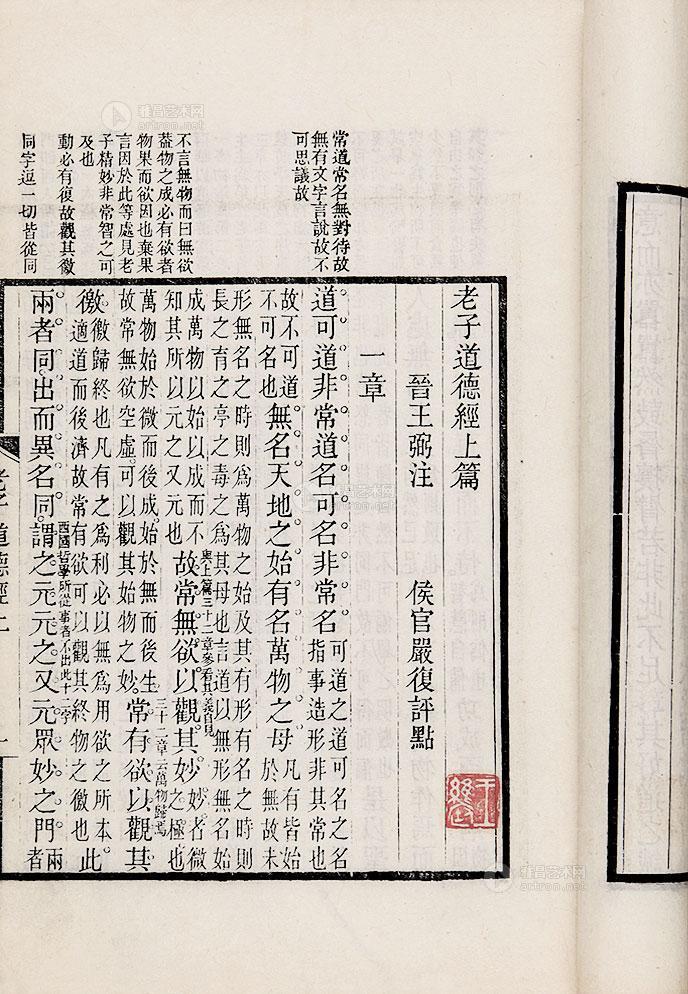 常道常名無對待故
無有文字言說故不
可思議故
不言無物而曰無欲
葢物之成必有欲者
物果而欲因也棄果
言因於此等處見老
子精妙非常智之可
及也
動必有復故觀其徼
同字逗一切皆從同
老子道德經上篇
晉王弼注 侯官嚴復評點
一章
道。可。道。非。常。道。名。可。名。非。常。名。
可道之道可名之名
指事造形非其常也
故不可道
不可名也
無名天地之始有名萬物之母
凡有皆始
於無故未
形無名之時則爲萬物之始及其有形有名之時則
長之育之亭之毒之爲其母也言道以無形無名始
成萬物以始以成而不
知其所以元之又元也
與上篇三十二章參看其義自見
故。常。無。欲。以。觀。其。妙。
妙者微
之極也
萬物始於微而後成始於無而後生
故常無欲空虛可以觀其始物之妙
三十二章云萬物歸焉
常。有。欲。以。觀。其。
徼。
徼歸終也凡有之爲利必以無爲用欲之所本
適道而後濟故常有欲可以觀其終物之徼也
此
西國哲學所從事者不出此十二字
兩。者。同。出。而。異。名。同。謂。之。元。元。之。又。元。眾。妙。之。門。
兩
者
雅昌艺术网
artron.net